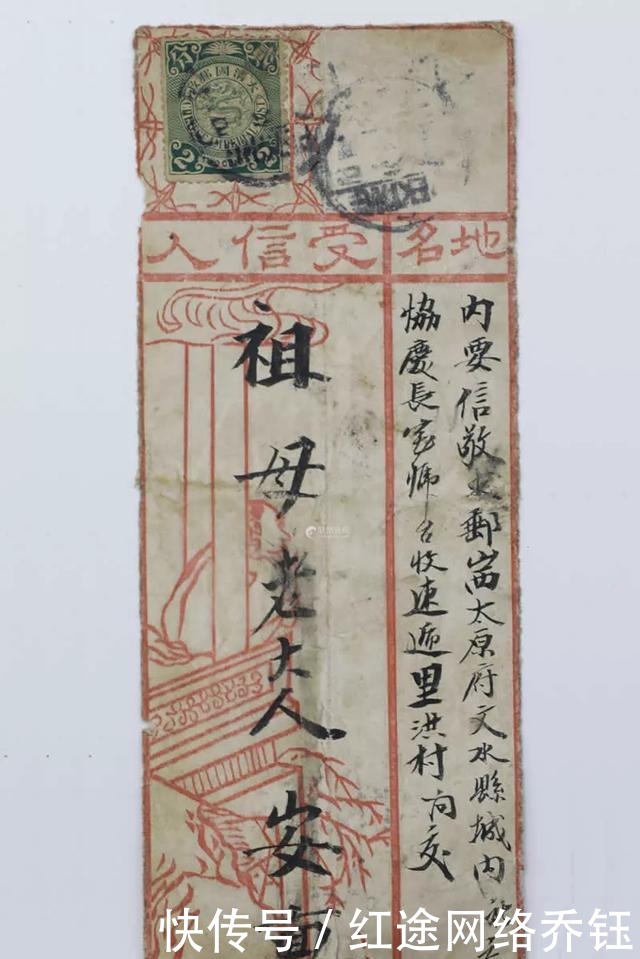 貳分
大清國郵政
2 2
EKING
地名
受信人
内要信敬求郵山西太原府文水縣城内
恊慶長宝师台收速遞里洪村向交
祖母老大人安
快传号 / 红途网络乔钰